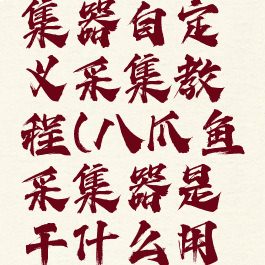 集器自定
义采集教
程(八爪鱼
采集器是
干什么用